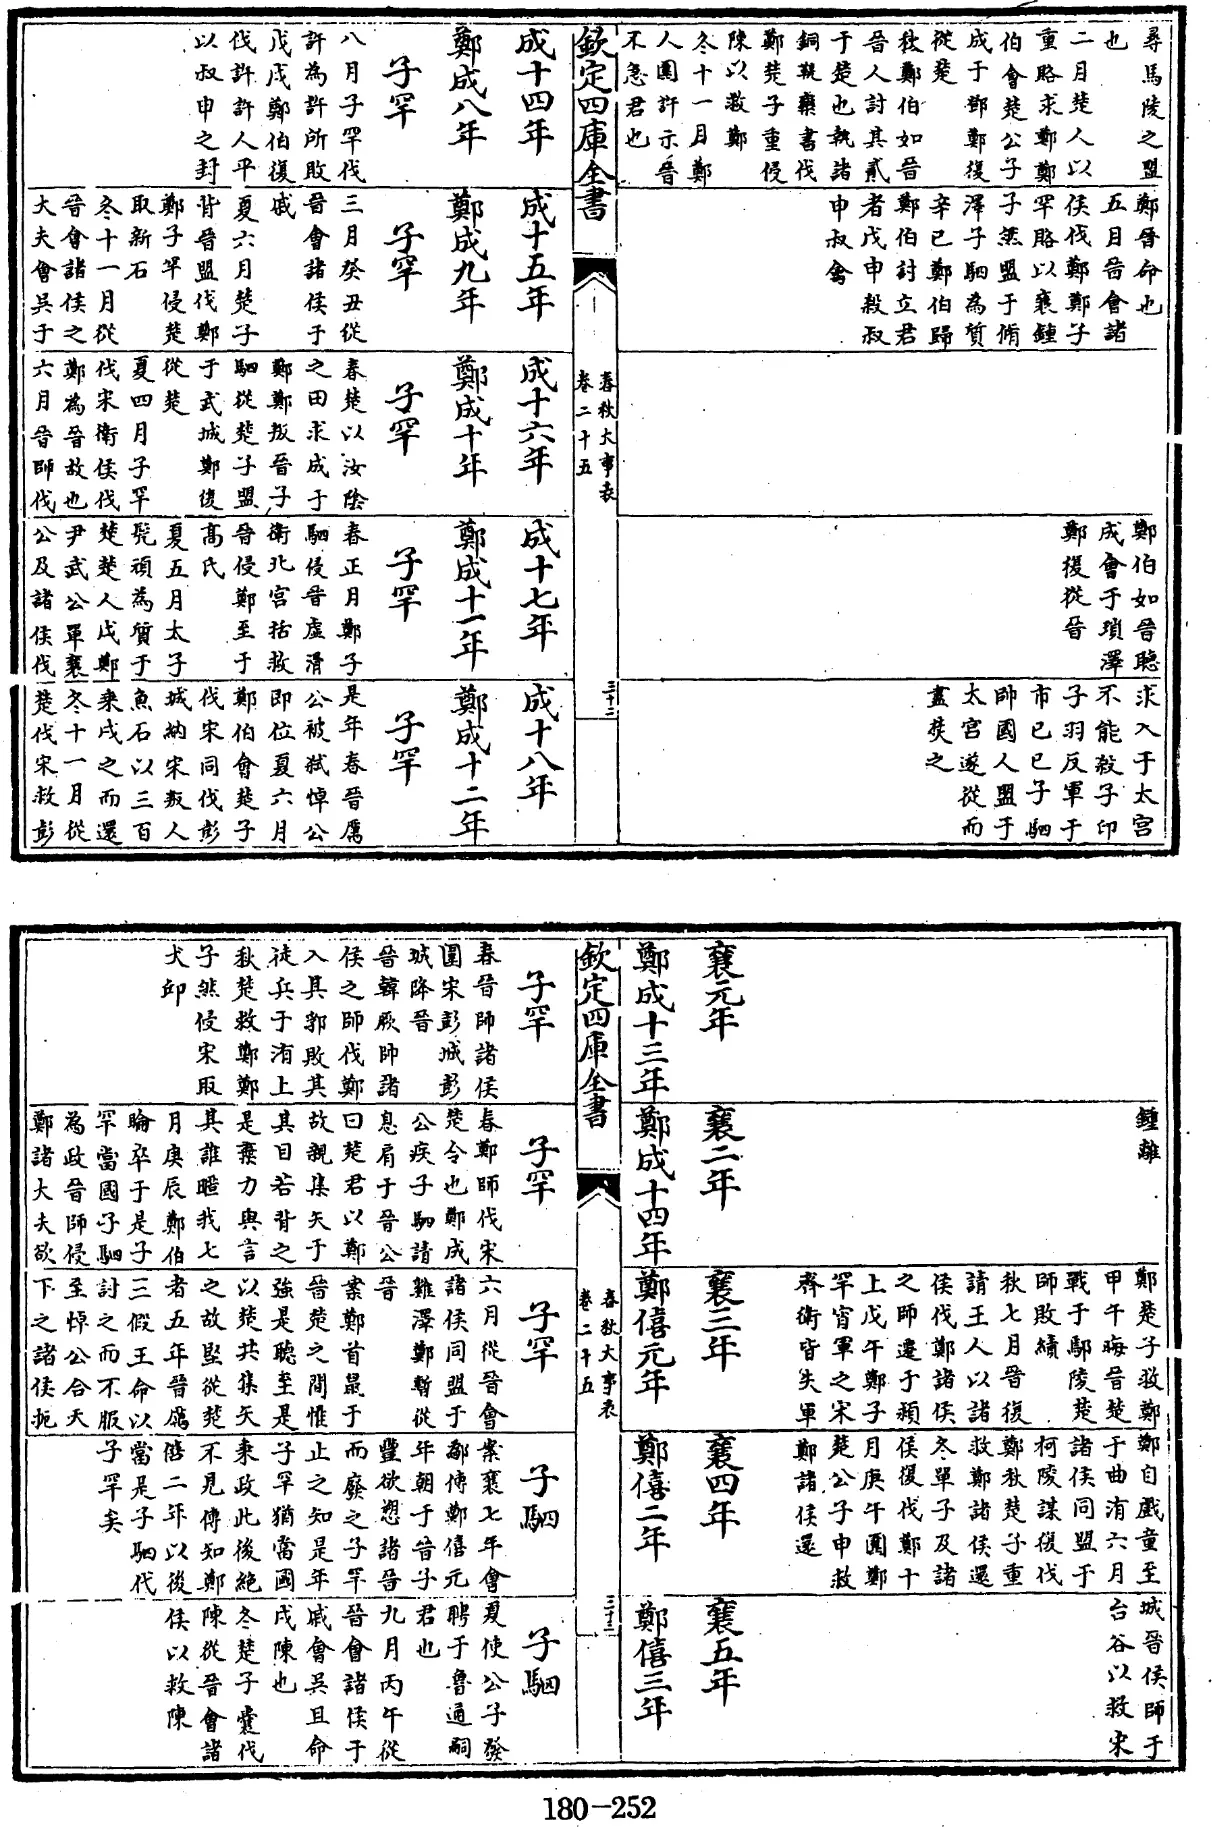 尋馬陵之盟
也
二月楚人以
重賂求鄭鄭
伯會楚公子
成于鄧鄭復
從楚
秋鄭伯如晉
晉人討其貳
于楚也執諸
銅鞮欒書伐
鄭楚子重侵
陳以救鄭
冬十一月鄭
人圍許示晉
不急君也
鄭晉命也
五月晉會諸
侯伐鄭鄭子
罕賂以襄鍾
子然盟于脩
澤子駟為質
辛巳鄭伯歸
鄭伯討立君
者戊申殺叔
申叔禽
鄭伯如晉聽
成會于瑣澤
鄭復從晉
求入于太宮
不能殺子印
子羽反軍于
市已巳子駟
帥國人盟于
太宮遂從而
盡焚之
欽定四庫全書
春秋大事表
卷二十五
三十二
成十四年
鄭成八年
子罕
八月子罕伐
許為許所敗
戊戌鄭伯復
伐許許人平
以叔申之封
成十五年
鄭成九年
子罕
三月癸丑從
晉會諸侯于
戚
夏六月楚子
背晉盟伐鄭
鄭子罕侵楚
取新石
冬十一月從
晉會諸侯之
大夫會吳于
成十六年
鄭成十年
子罕
春楚以汝陰
之田求成于
鄭鄭叛晉子
駟從楚子盟
于武城鄭復
從楚
夏四月子罕
伐宋衛侯伐
鄭為晉故也
六月晉師伐
成十七年
鄭成十一年
子罕
春正月鄭子
駟侵晉虛滑
衛北宮括救
晉侵鄭至于
高氏
夏五月太子
髠頑為質于
楚楚人戍鄭
尹武公單襄
公及諸侯伐
成十八年
鄭成十二年
子罕
是年春晉厲
公被弒悼公
即位夏六月
鄭伯會楚子
伐宋同伐彭
城納宋叛人
魚石以三百
乘戍之而還
冬十一月從
楚伐宋救彭
鍾離
鄭楚子救鄭
甲午晦晉楚
戰于鄢陵楚
師敗績
秋七月晉復
請王人以諸
侯伐鄭諸侯
之師遷于潁
上戊午鄭子
罕宵軍之宋
齊衛皆失軍
鄭自戲童至
于曲洧六月
諸侯同盟于
柯陵謀復伐
鄭秋楚子重
救鄭諸侯還
冬單子及諸
侯復伐鄭十
月庚午圍鄭
楚公子申救
鄭諸侯還
城晉侯師于
台谷以救宋
襄元年
鄭成十三年
襄二年
鄭成十四年
襄三年
鄭僖元年
襄四年
鄭僖二年
襄五年
鄭僖三年
欽定四庫全書
春秋大事表
卷二十五
三十三
子罕
春晉師諸侯
圍宋彭城彭
城降晉
晉韓厥帥諸
侯之師伐鄭
入其郛敗其
徒兵于洧上
秋楚救鄭鄭
子然侵宋取
犬邱
子罕
春鄭師伐宋
楚令也鄭成
公疾子駟請
息肩于晉公
曰楚君以鄭
故親集矢于
其目若背之
是棄力與言
其誰暱我七
月庚辰鄭伯
睔卒于是子
罕當國子駟
為政晉師侵
鄭諸大夫欲
子罕
六月從晉會
諸侯同盟于
雞澤鄭暫從
晉
案鄭首鼠于
晉楚之間惟
強是聽至是
以楚共集矢
之故堅從楚
者五年晉厲
三假王命以
討之而不服
至悼公合天
下之諸侯扼
子駟
案襄七年會
鄬傳鄭僖元
年朝于晉子
豐欲愬諸晉
而廢之子罕
止之知是年
子罕猶當國
秉政此後絕
不見傳知鄭
僖二年以後
當是子駟代
子罕矣
子駟
夏使公子發
聘于魯通嗣
君也
九月丙午從
晉會諸侯于
戚會吳且命
戍陳也
冬楚子囊伐
陳從晉會諸
侯以救陳
180-252